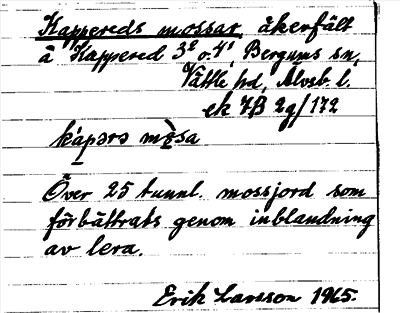 Kappereds mossar, åkerfält
å Kappered 3² o. 4¹, Bergums sn,
Vättle hd, Älvsb. l.
ek 7B 2g/172
kápərə mòsa
Över 25 tunnl. mossjord som
förbättrats genom inblandning
av lera.
Erik Larsson 1965.